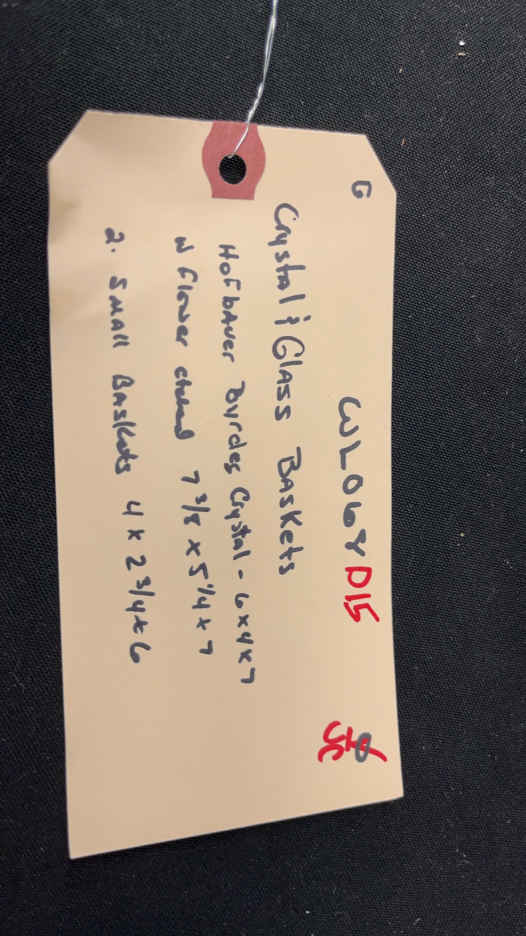 G WL068 D15 JC
Crystal & Glass Baskets
Hofbauer Byrdes Crystal - 6x4x7
w flower etched 7 3/8 x 5 1/4 x 7
2. Small Baskets 4 x 2 3/4 x 6